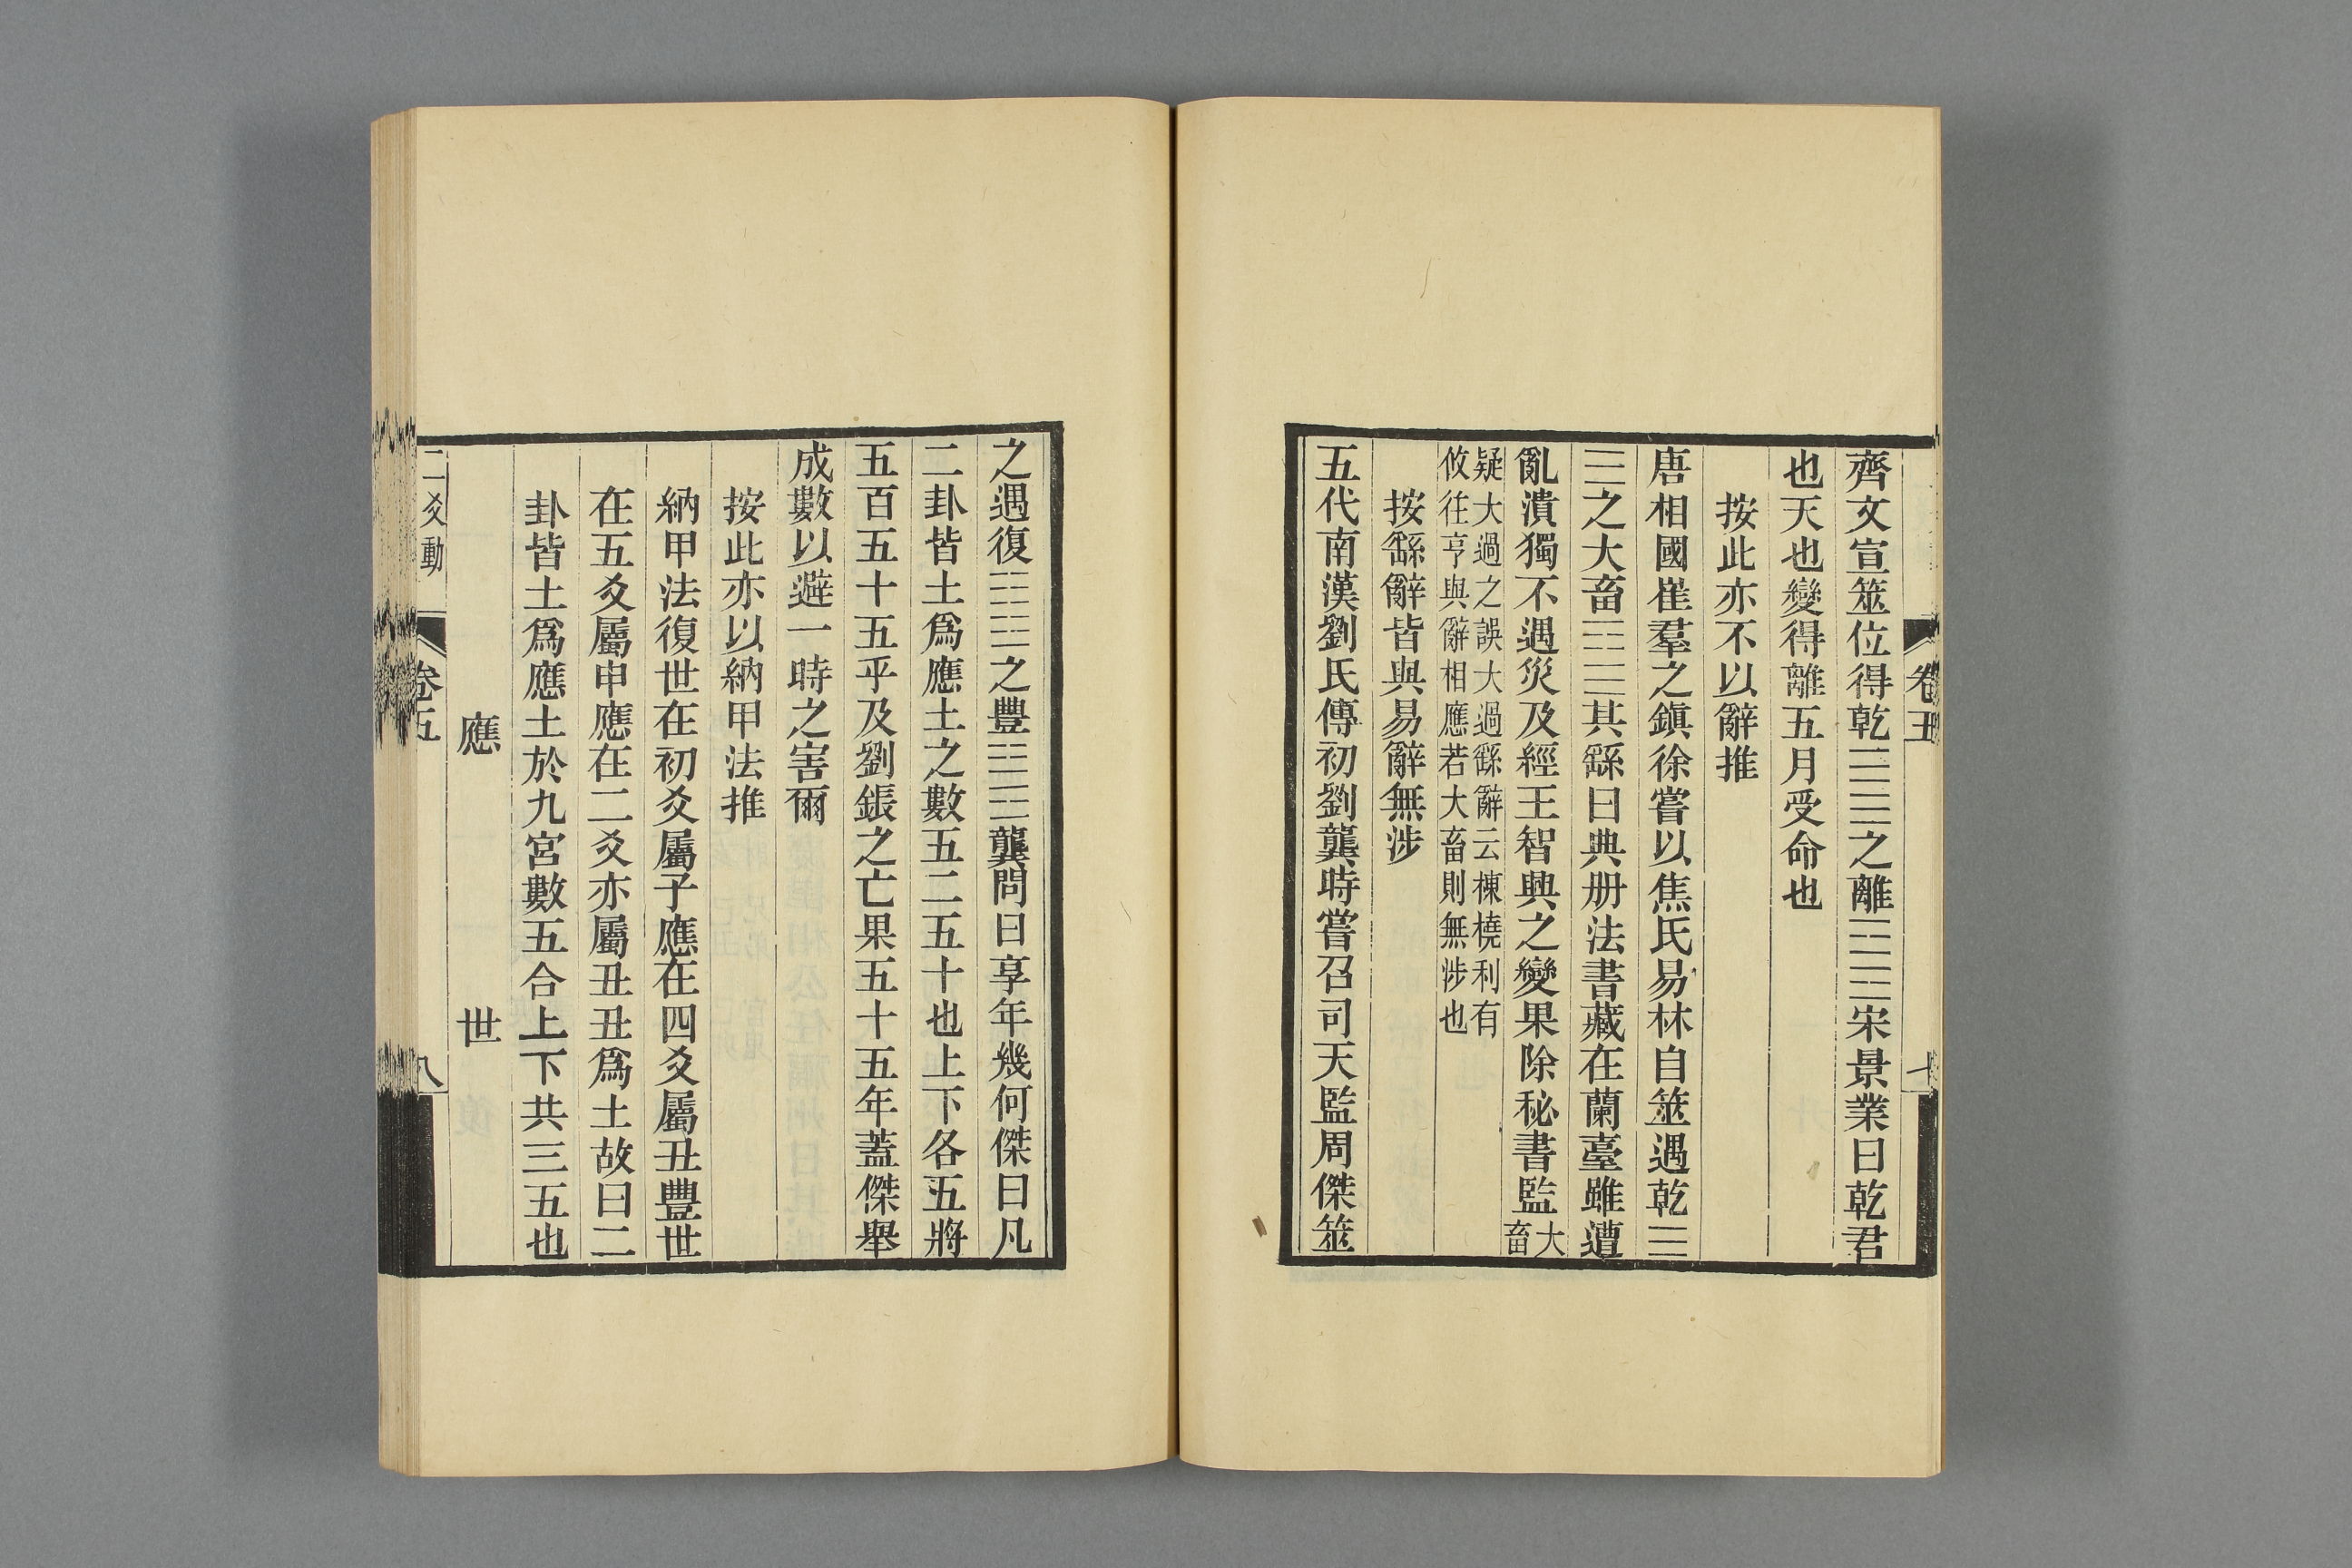 卷五
七
齊文宣筮位得乾☰☰之離☲☲宋景業曰乾君
也天也變得離五月受命也
按此亦不以辭推
唐相國崔羣之鎭徐嘗以焦氏易林自筮遇乾☰
☰之大畜☶☰其繇曰典册法書藏在蘭臺雖遭
亂潰獨不遇災及經王智興之變果除秘書監大畜
疑大過之誤大過繇辭云棟橈利有
攸往亨與辭相應若大畜則無涉也
按繇辭皆與易辭無涉
五代南漢劉氏傳初劉龑時嘗召司天監周傑筮
之遇復☷☳之豐☳☲龑問曰享年幾何傑曰凡
二卦皆土爲應土之數五二五十也上下各五將
五百五十五乎及劉鋹之亡果五十五年蓋傑舉
成數以避一時之害爾
按此亦以納甲法推
納甲法復世在初爻屬子應在四爻屬丑豐世
在五爻屬申應在二爻亦屬丑丑爲土故曰二
卦皆土爲應土於九宮數五合上下共三五也
應 世
二爻動
卷五
八